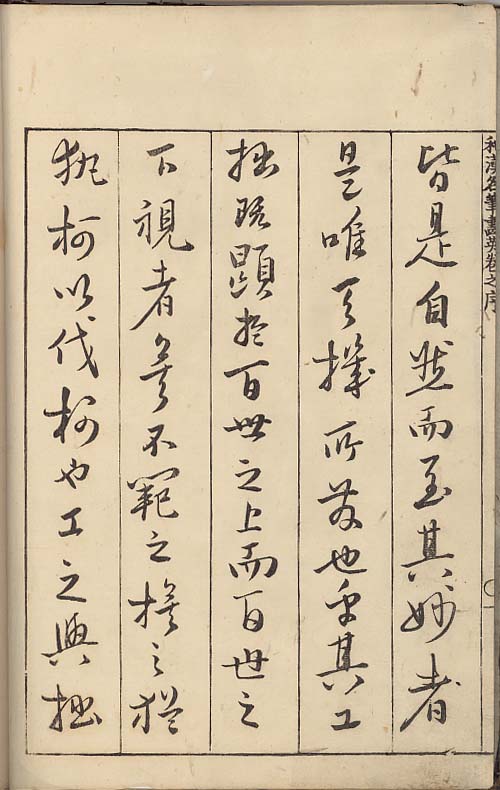 和漢名筆畫英卷之序
皆是自然而至其妙者
是唯天機所發也其工
拙既顕於百世之上而百世之
下視者不範之模之猶
執柯以伐柯也工之與拙